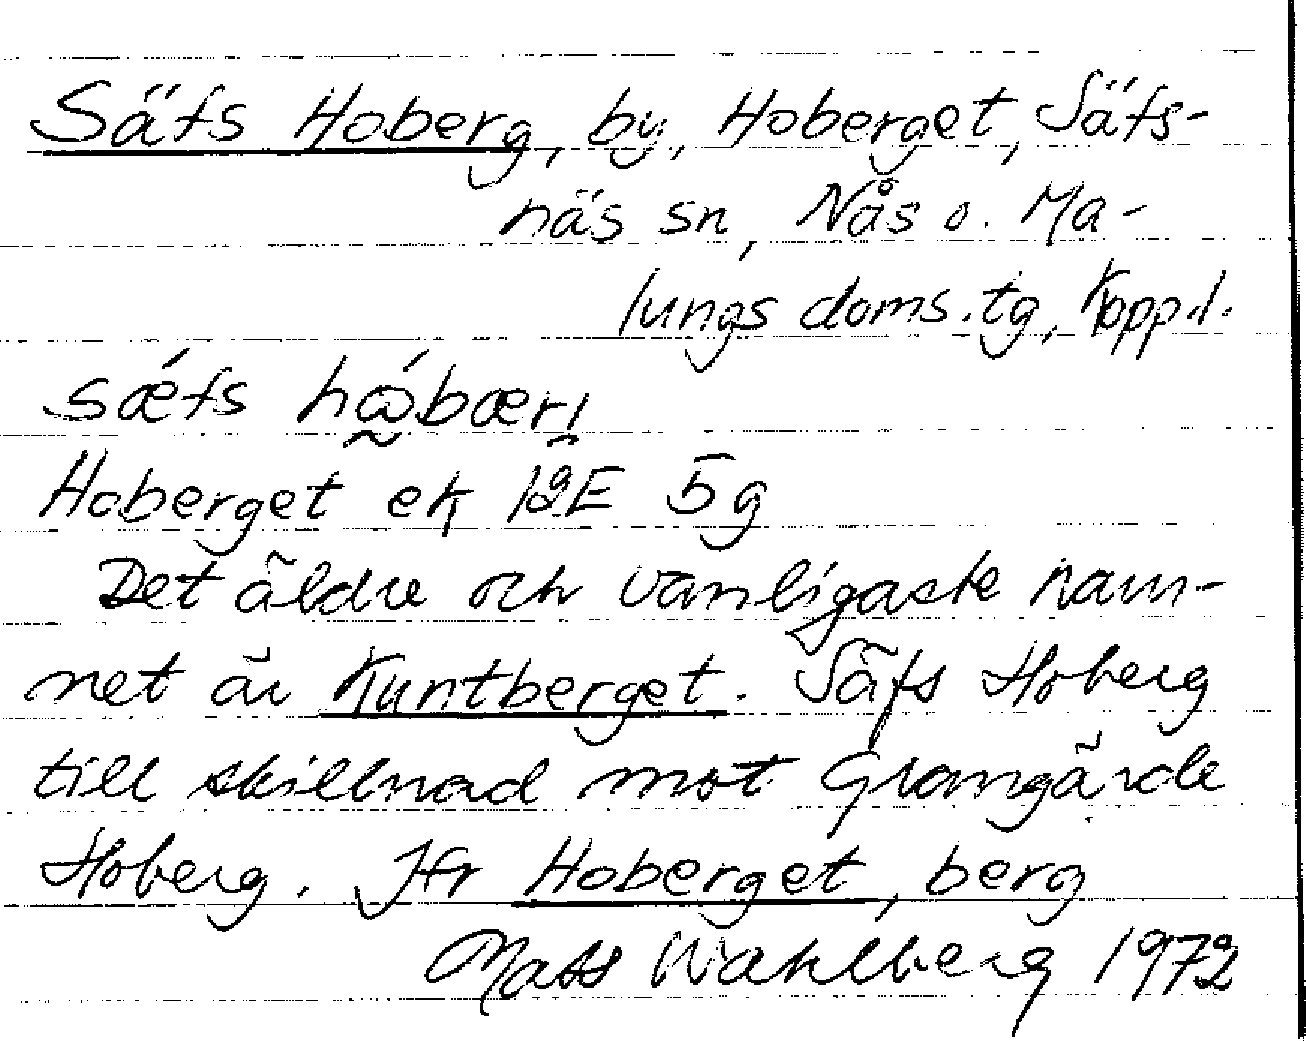 Säfs Hoberg, by, Hoberget, Säfs-
näs sn, Nås o. Ma-
lungs doms.tg, Kopp.l.
sǽfs hώbæri̯
Hoberget ek 12E 5g
Det äldre och vanligaste nam-
net är Kuntberget. Säfs Hoberg
till skillnad mot Grangärde
Hoberg. Jfr Hoberget, berg
Mats Wahlberg 1972